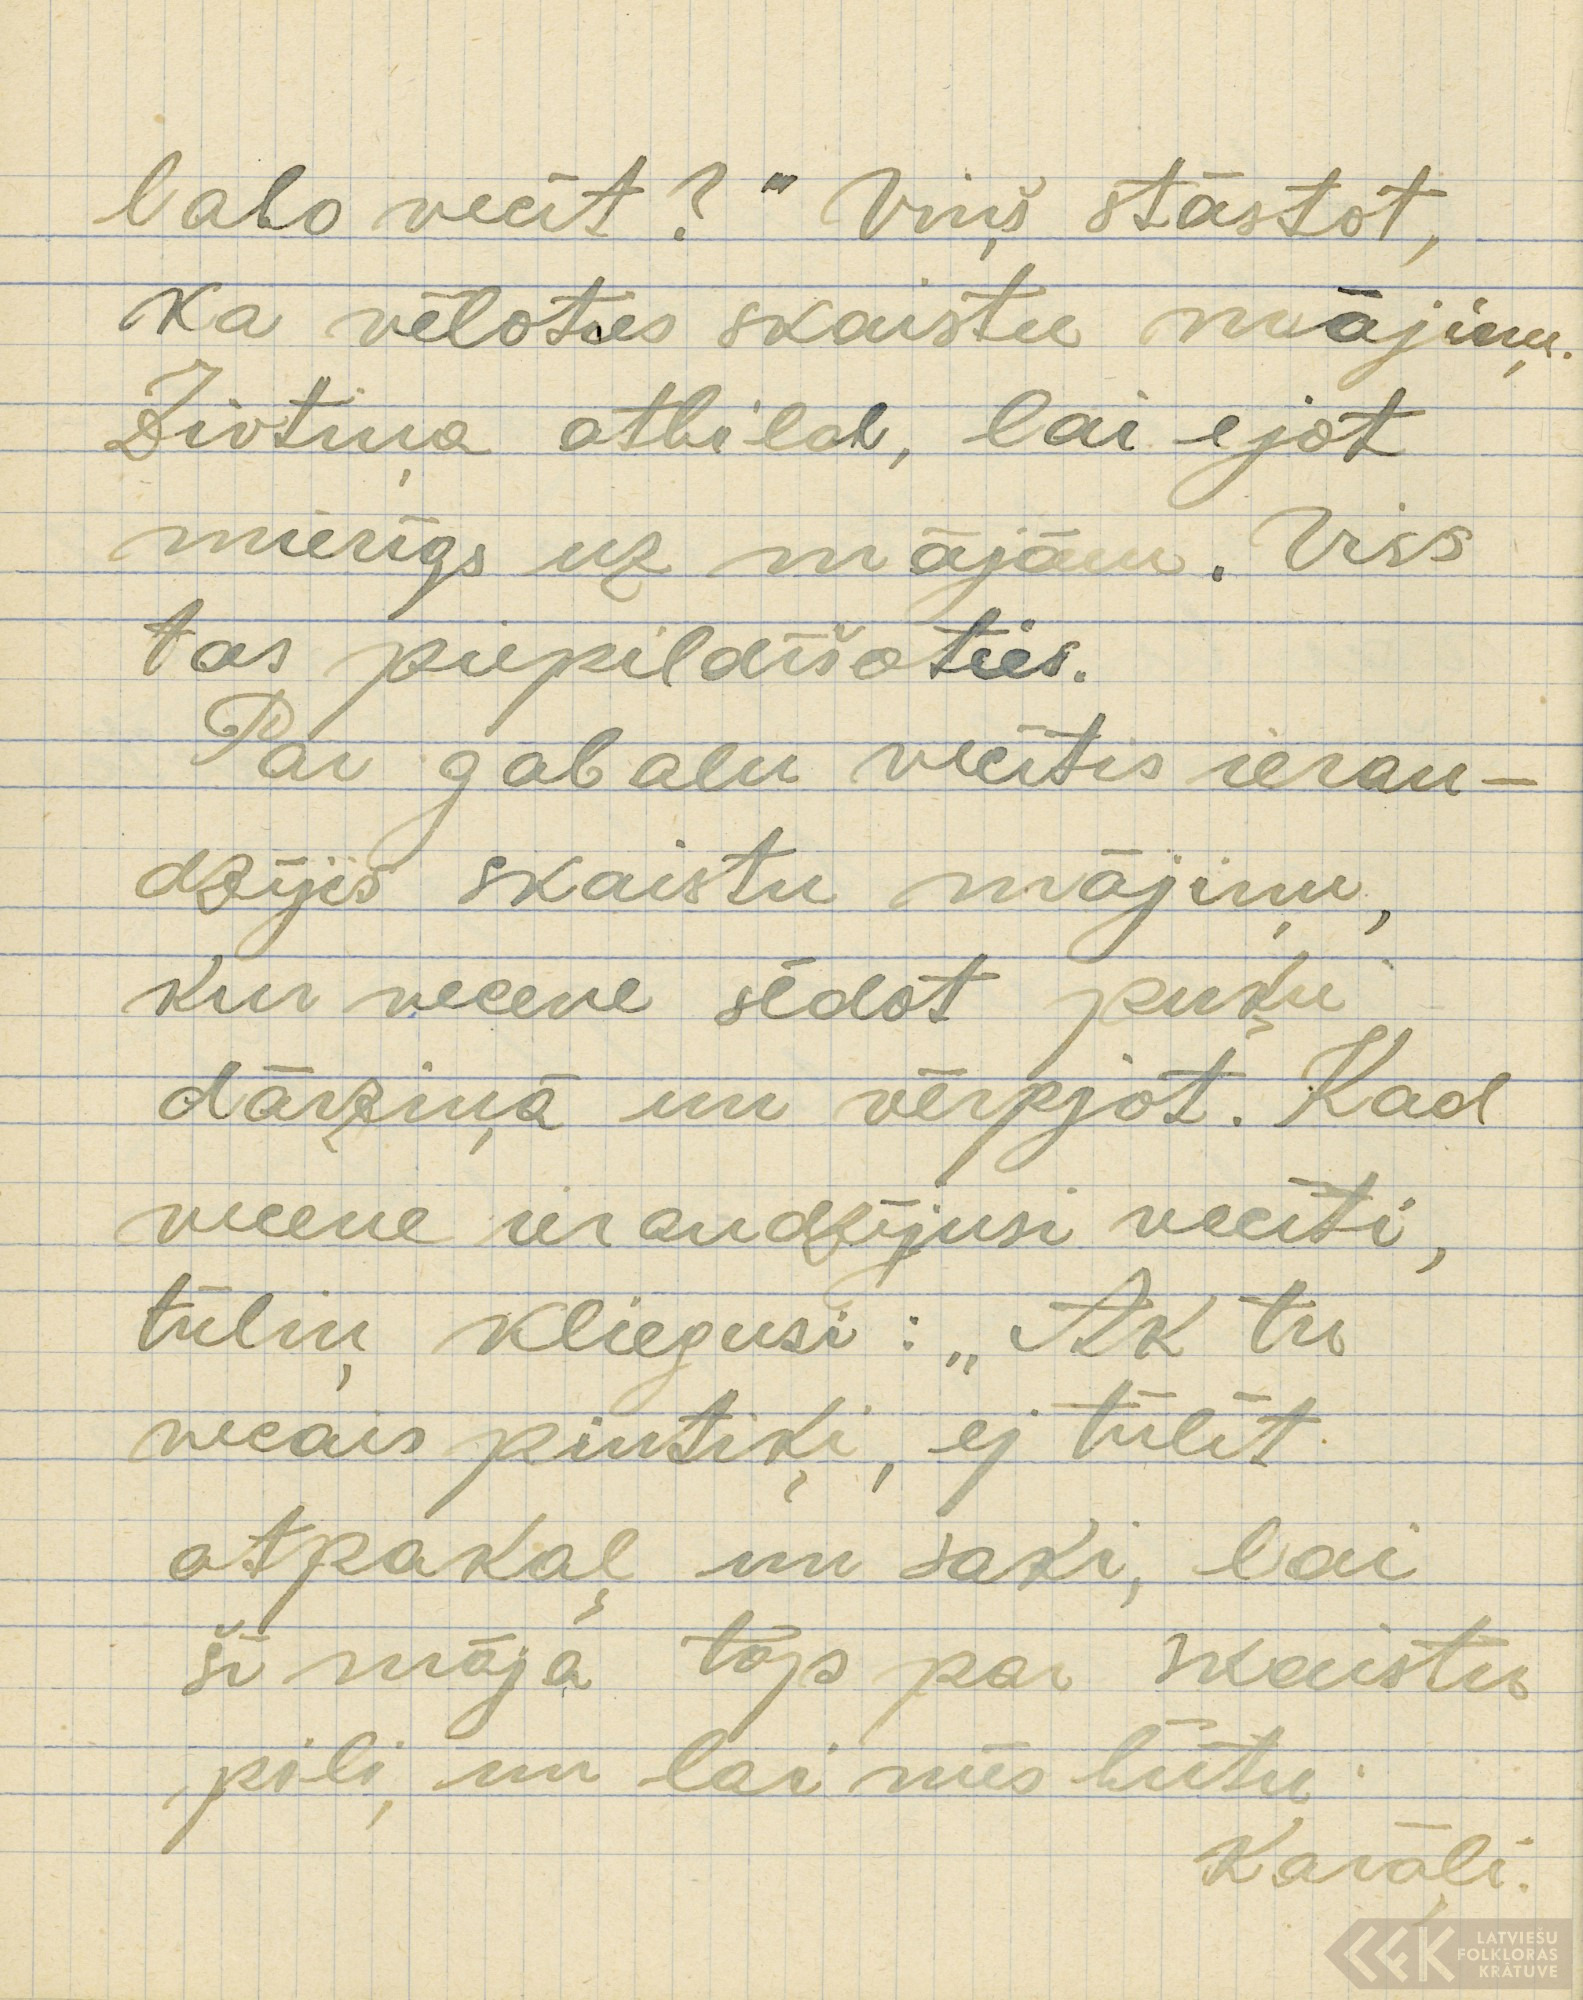 labo vecīt?" Viņš stāstot,
ka vēloties skaistu mājiņu.
Zivtiņa atbild, lai ejot
mierīgs uz mājām. Viss
tas piepildīšoties.
Par gabalu vecītis ierau-
dzījis skaistu mājiņu,
kur vecene sēdot puķu
dārziņā un vērpjot. Kad
vecene ieraudzījusi vecīti,
tūliņ kliegusi: „Ak tu
vecais pintiķi, ej tūlīt
atpakaļ un saki, lai
šī māja tōp par skaistu
pili, un lai mēs būtu
Karāļi.
LATVIEŠU
FOLKLORAS
KRĀTUVE